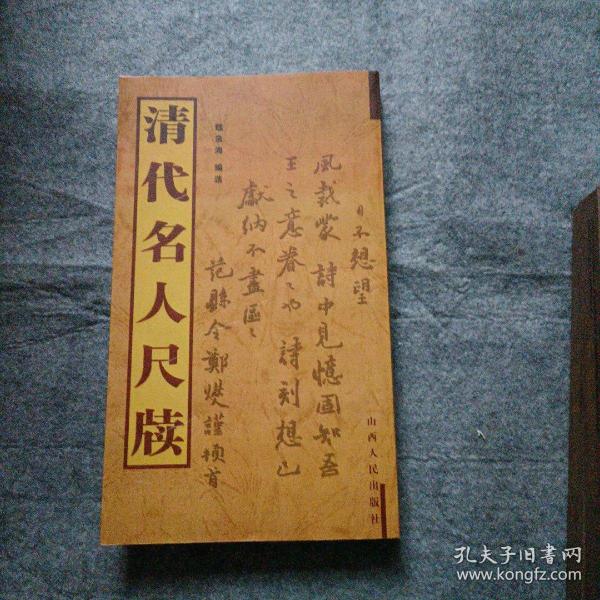 清代名人尺牍
魏泉海 编选
日不想望
风载蒙 詩中見憶固知吾
王之意眷〻也 詩刻想已
獻納不盡區〻
范縣令鄭燮謹頓首
山西人民出版社
孔夫子旧书网
www.kongfz.com